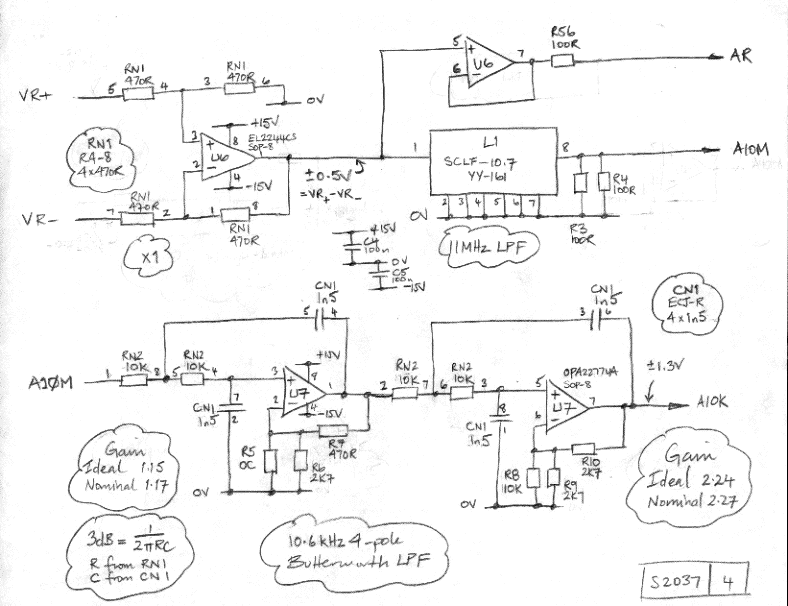 R56
100R
AR
5
+
6
-
U6
7
RN1
470R
VR+
5
4
RN1
470R
3
6
0V
+15V
8
EL2244CS
SOP-8
3
+
2
-
U6
1
4
-15V
RN1
RA-8
4x470R
±0.5V
=VR+-VR-
1
L1
SCLF-10.7
YY-161
8
A10M
2
3
4
5
6
7
R4
100R
R3
100R
0V
VR-
RN1
470R
7
2
1
8
RN1
470R
x1
+15V
C4
100n
0V
C5
100n
-15V
11MHz LPF
CN1
1n5
5
4
CN1
1n5
3
6
CN1
ECJ-R
4x1n5
A10M
1
RN2
10K
8
5
RN2
10K
4
3
+
2
-
U7
+15V
8
1
4
-15V
CN1
1n5
7
2
R5
OC
R6
2K7
R7
470R
0V
2
RN2
10K
7
6
RN2
10K
3
5
+
6
-
U7
OPA2277UA
SOP-8
7
±1.3V
A10K
CN1
1n5
8
1
R8
10K
R9
2K7
R10
2K7
0V
Gain
Ideal 1.15
Nominal 1.17
Gain
Ideal 2.24
Nominal 2.27
3dB = 1
2πRC
R from RN1
C from CN1
10.6kHz 4-pole
Butterworth LPF
S2037
4